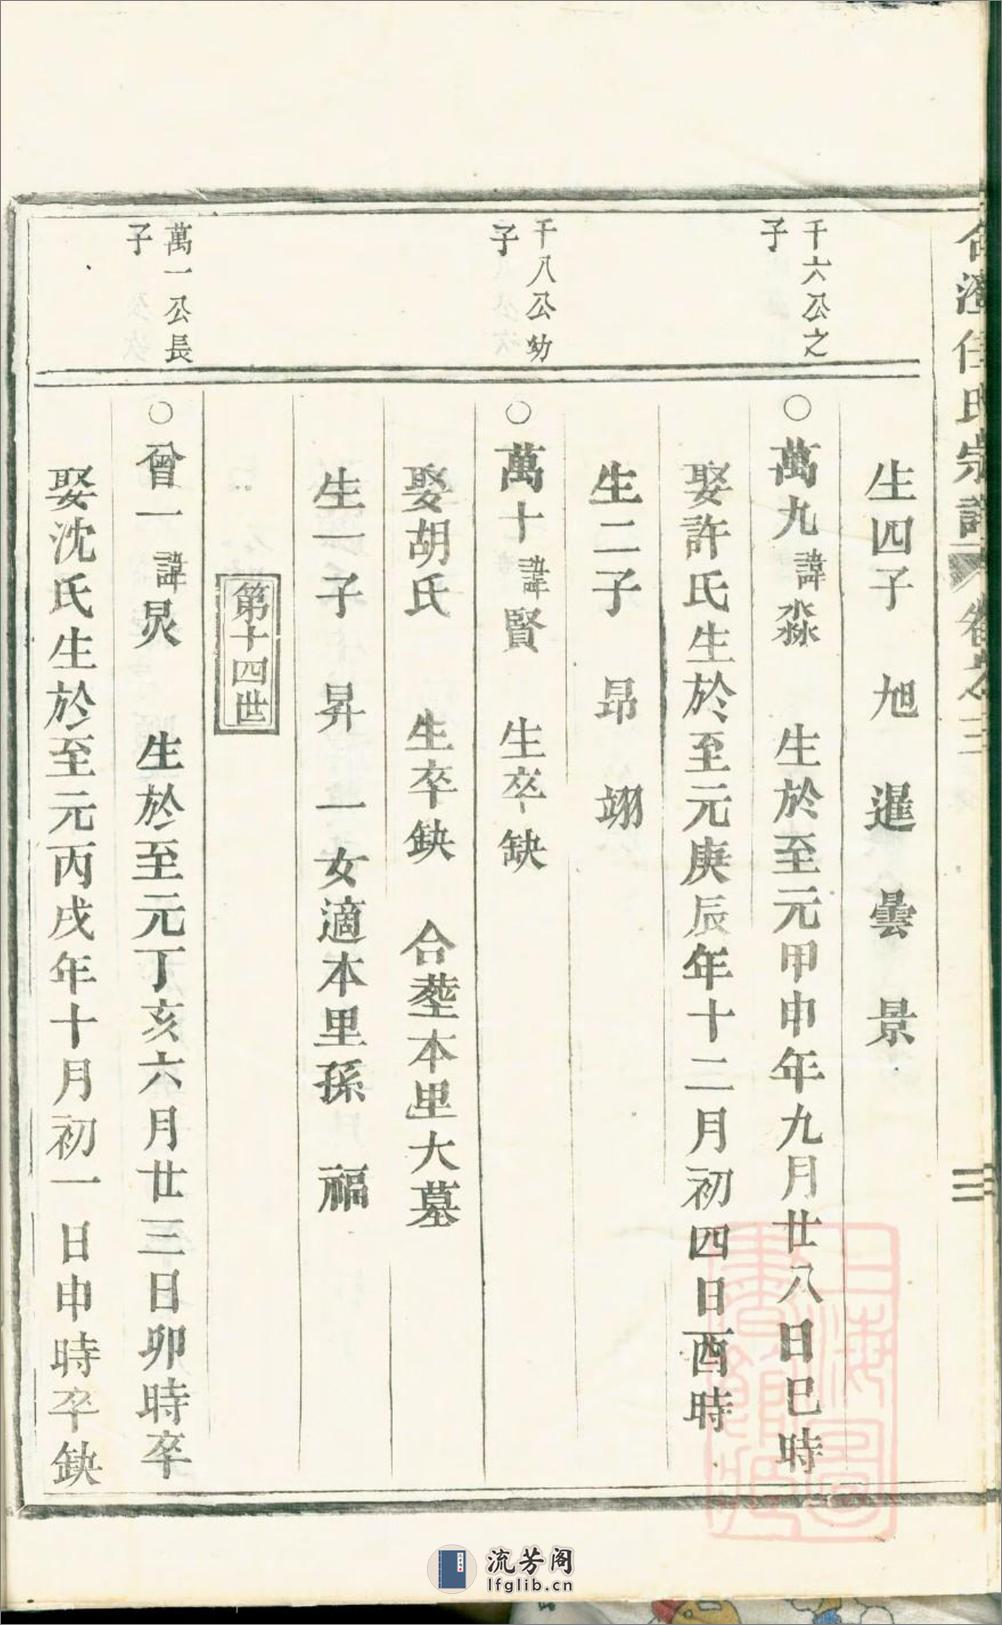 氏宗譜 卷之三
三
生四子 旭 暹 曇 景
千六公之子
○萬九諱淼 生於至元甲申年九月廿八日巳時
娶許氏生於至元庚辰年十二月初四日酉時
生二子 昂 翊
千八公幼子
○萬十諱賢 生卒缺
娶胡氏 生卒缺 合塟本里大墓
生一子 昇 一女適本里孫 福
第十四世
萬一公長子
○曾一諱炅 生於至元丁亥六月廿三日卯時卒
娶沈氏生於至元丙戌年十月初一日申時卒缺
上海圖書館藏
流芳阁
lfglib.cn